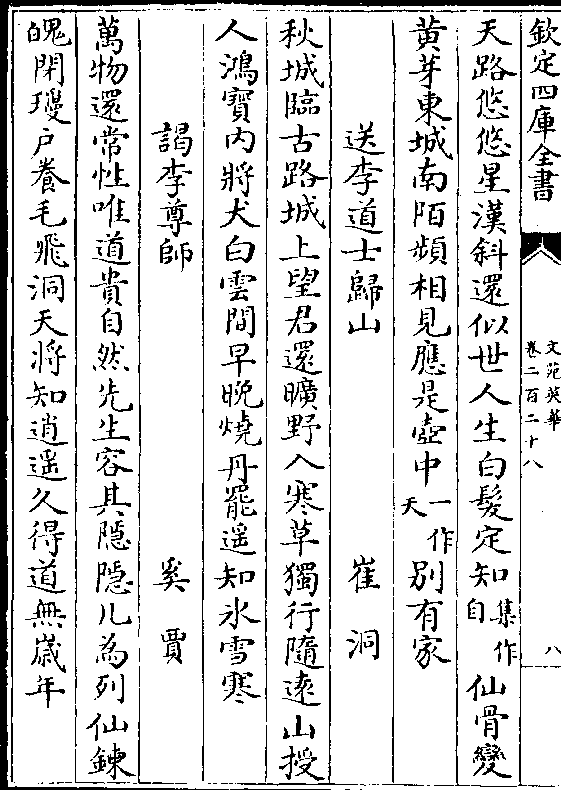 欽定四庫全書
文苑英華
卷二百二十八
八
天路悠悠星漢斜還似世人生白髮定知集作自仙骨變
黄芽東城南陌頻相見應是壺中一作天别有家
送李道士歸山
崔洞
秋城臨古路城上望君還曠野入寒草獨行隨遠山授
人鴻寳内將犬白雲間早晚燒丹罷遥知氷雪寒
謁李尊師
奚賈
萬物還常性唯道貴自然先生容其隠隠几為列仙鍊
魄閉瓊户養毛飛洞天將知逍遥久得道無嵗年